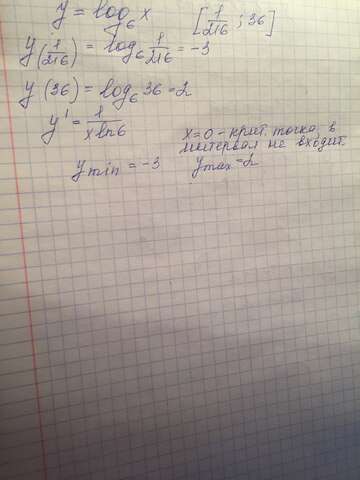 y = log₆ x [1/216 ; 36]
y(1/216) = log₆ 1/216 = -3
y (36) = log₆ 36 = 2
y' = 1/(x ln6)
x=0 - крит. точка, в
интервал не входит.
y min = -3 y max = 2